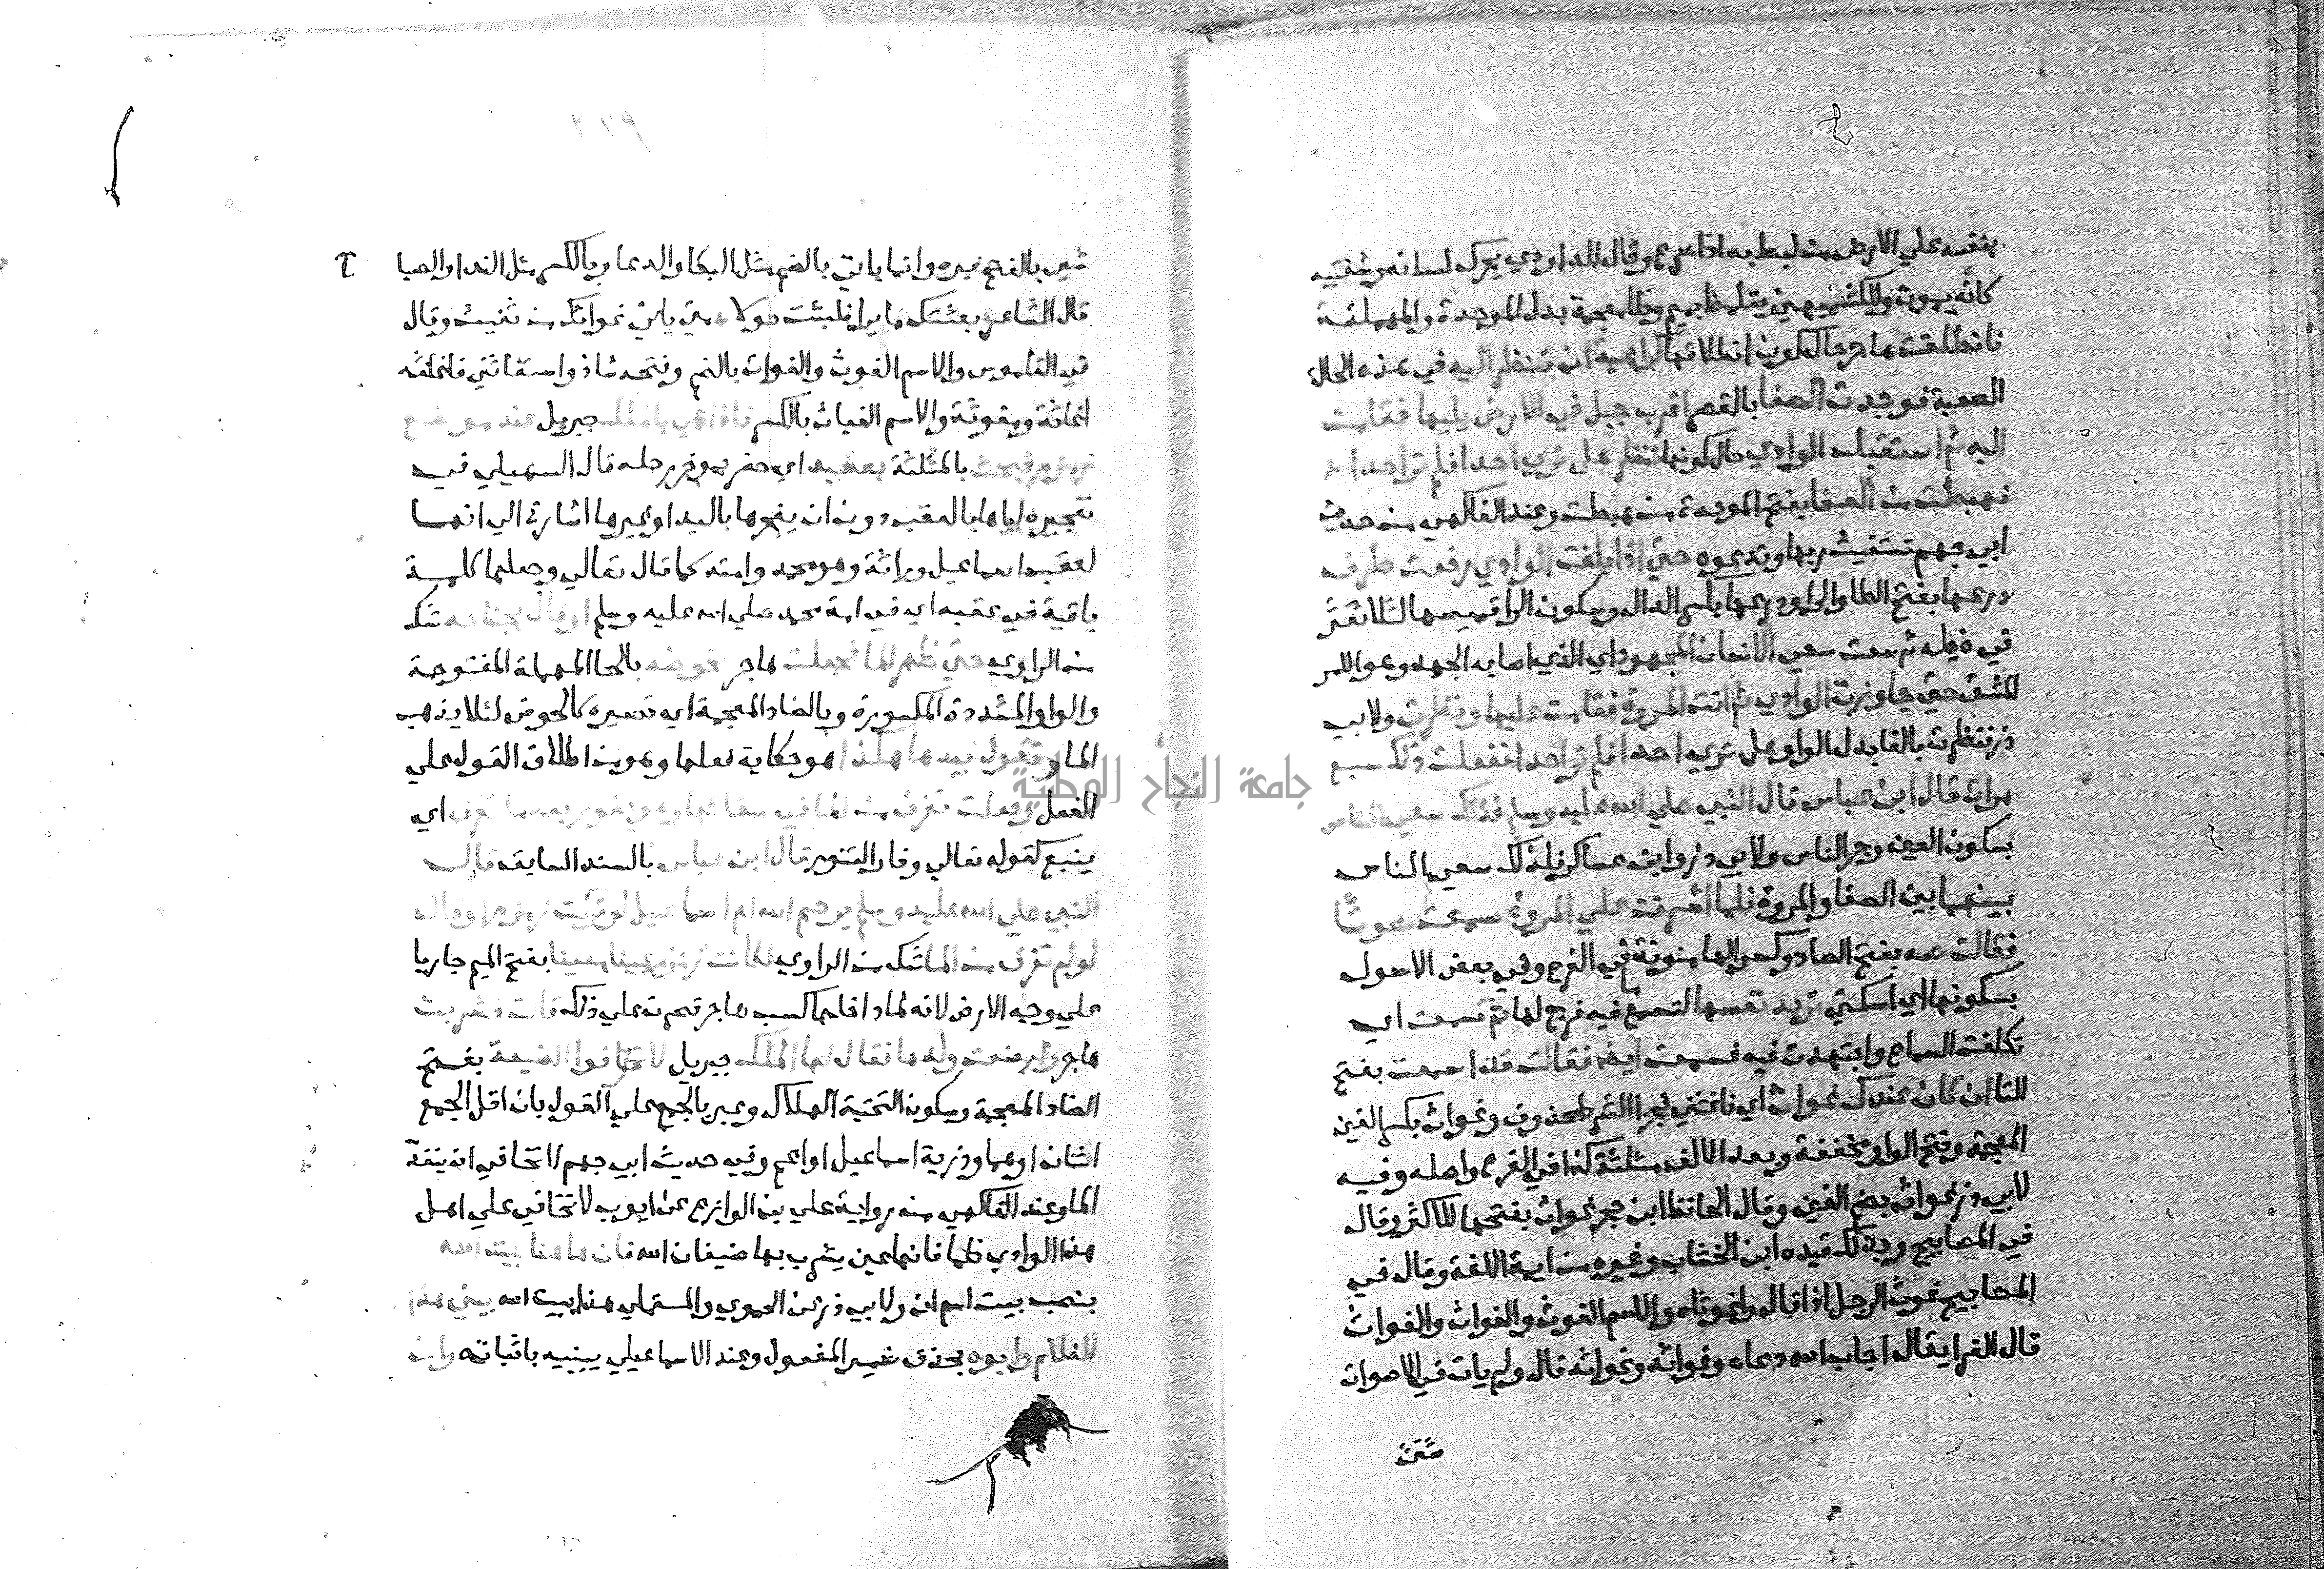 بنفسه علي الارض من لبط به اذا صرع وقال الداودي يحرك لسانه وشفتيه
كانه يموت وللكشميهني يتلمظ بميم وظا معجمة بدل الموحدة والمهملة
فانطلقت هاجر حال كون انطلاقها كراهية ان تنظر اليه في هذه الحالة
الصعبة فوجدت الصفا بالقصر اقرب جبل في الارض يليها فقامت
اليه ثم استقبلت الوادي حال كونها تنظر هل تري احدا فلم تر احدا
فهبطت من الصفا بفتح الموحدة من هبطت وعند الفاكهي من حديث
ابي جهم تستغيث ربها وتدعوه حتي اذا بلغت الوادي رفعت طرف
درعها بفتح الطا والرا ودرعها بكسر الدال وسكون الرا قميصها لئلا تعثر
في ذيله ثم سعت سعي الانسان المجهود اي الذي اصابه الجهد وهو الامر
المشق حتي جاوزت الوادي ثم اتت المروة فقامت عليها ونظرت ولابي
ذر فنظرت بالفا بدل الواو هل تري احدا فلم تر احدا ففعلت ذلك سبع
مرات قال ابن عباس قال النبي صلي الله عليه وسلم فذلك سعي الناس
بسكون العين وجر الناس ولابي ذر وابن عساكر فلذلك سعي الناس
بينهما بين الصفا والمروة فلما اشرفت علي المروة سمعت صوتًا
فقالت صه بفتح الصاد وكسر الها منونة في الفرع وفي بعض الاصول
بسكونها اي اسكتي تريد نفسها لتسمع فيه فرج لها ثم تسمعت اي
تكلفت السماع واجتهدت فيه فسمعت ايضا فقالت قد اسمعت بفتح
التا ان كان عندك غواث اي فاغثني فجزا الشرط محذوف وغواث بكسر الغين
المعجمة وفتح الواو مخففة وبعد الالف مثلثة كذا في الفرع واصله وفيه
لابي ذر غواث بضم الغين وقال الحافظ ابن حجر غواث بفتحها للاكثر وقال
في المصابيح وبذلك قيده ابن الخشاب وغيره من ايمة اللغة وقال في
المصابيح غوث الرجل اذا قال واغوثاه والاسم الغوث والغواث والغواث
قال الفرا يقال اجاب الله دعاه وغواثه وغواثه قال ولم يات في الاصوات
شي بالفتح غيره وانما ياتي بالضم مثل البكا والدعا وبالكسر مثل الندا والصيا
ح
قال الشاعر بعثتك مايرا فلبثت حولا متي ياتي غواثك من تغيث وقال
في القاموس والاسم الغوث والغواث بالضم وفتحه شاذ واستغاثني فاغثته
اغاثة ومغوثة والاسم الغياث بالكسر فاذا هي بالملك جبريل عند موضع
زمزم فبحث بالمثلثة بعقبه اي حفر بموخر رجله قال السهيلي في
تفجيره اياها بالعقب دون ان يفجرها باليد او غيرها اشارة الي انها
لعقب اسماعيل وراثة وهو محمد وامته كما قال تعالي وجعلها كلمة
باقية في عقبه اي في امة محمد صلي الله عليه وسلم او قال بجناحه شك
من الراوي حتي ظهر الما فجعلت هاجر تحوضه بالحا المهملة المفتوحة
والواو المشددة المكسورة وبالضاد المعجمة اي تصيره كالحوض لئلا يذهب
الما وتقول بيدها هكذا هو حكاية فعلها وهو من اطلاق القول علي
الفعل وجعلت تغرف من الما في سقائها وهو يفور بعد ما تغرف اي
ينبع كقوله تعالي وفار التنور قال ابن عباس بالسند السابق قال
النبي صلي الله عليه وسلم يرحم الله ام اسماعيل لو تركت زمزم او قال
لو لم تغرف من الما شك من الراوي لكانت زمزم عينا معينا بفتح الميم جاريا
علي وجه الارض لانه لما داخلها كسب هاجر قصرت علي ذلك قال فشربت
هاجر وارضعت ولدها فقال لها الملك جبريل لا تخافوا الضيعة بفتح
الضاد المعجمة وسكون التحتية الهلاك وعبر بالجمع علي القول بان اقل الجمع
اثنان او هما وذرية اسماعيل او اعم وفي حديث ابي جهم لا تخافي ان ينفد
الما وعند الفاكهي من رواية علي بن الوازع عن ايوب لا تخافي علي اهل
هذا الوادي ظما فانها عين يشرب بها ضيفان الله فان هاهنا بيت الله
بنصب بيت اسم ان ولابي ذر عن الحموي والمستملي هذا بيت الله يبني هذا
الغلام وابوه بحذف ضمير المفعول وعند الاسماعيلي يبنيه باثباته وان
جامعة النجاح الوطنية